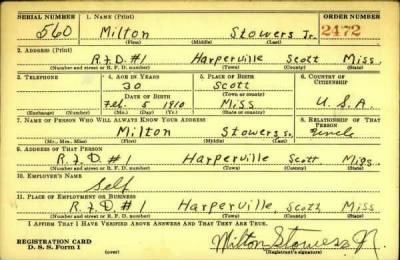 SERIAL NUMBER 1. NAME (Print) ORDER NUMBER
560 Milton Stowers Jr. 2472
(First) (Middle) (Last)
2. ADDRESS (Print)
R.F.D. #1 Harperville Scott Miss.
(Number and street or R. F. D. number) (Town) (County) (State)
3. TELEPHONE 4. AGE IN YEARS 5. PLACE OF BIRTH 6. COUNTRY OF CITIZENSHIP
30 Scott
(Town or county)
DATE OF BIRTH
Feb. 5 1910 Miss U.S.A.
(Exchange) (Number) (Mo.) (Day) (Yr.) (State or country)
7. NAME OF PERSON WHO WILL ALWAYS KNOW YOUR ADDRESS 8. RELATIONSHIP OF THAT PERSON
Milton Stowers Sr. Uncle
(Mr., Mrs., Miss) (First) (Middle) (Last)
9. ADDRESS OF THAT PERSON
R.F.D. #1 Harperville Scott Miss.
(Number and street or R. F. D. number) (Town) (County) (State)
10. EMPLOYER'S NAME
Self
11. PLACE OF EMPLOYMENT OR BUSINESS
R.F.D. #1 Harperville, Scott Miss
(Number and street or R. F. D. number) (Town) (County) (State)
I AFFIRM THAT I HAVE VERIFIED ABOVE ANSWERS AND THAT THEY ARE TRUE.
REGISTRATION CARD
D. S. S. Form 1 Milton Stowers Jr.
(over) (Registrant's signature)